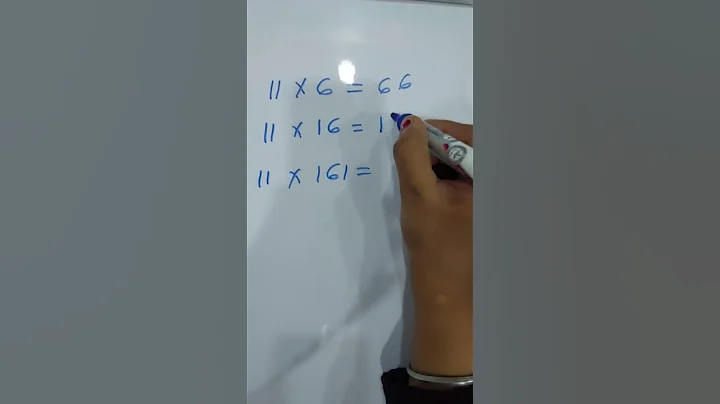 11 × 6 = 66
11 × 16 = 1
11 × 161 =